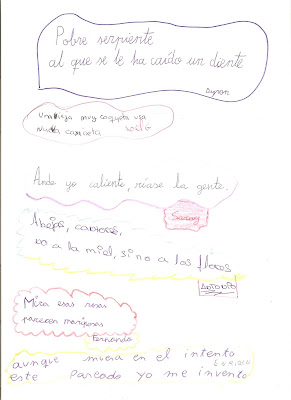 Pobre serpiente
al que se le ha caído un diente
Byron
Una vieja muy coqueta usa
nueva camiseta
Ande yo caliente, ríase la gente.
Saray
Abejas,
no a la miel, si no a las flores
Antonio
Mira esas rosas
parecen mariposas
Fernando
aunque muera en el intento
este pareado yo me invento